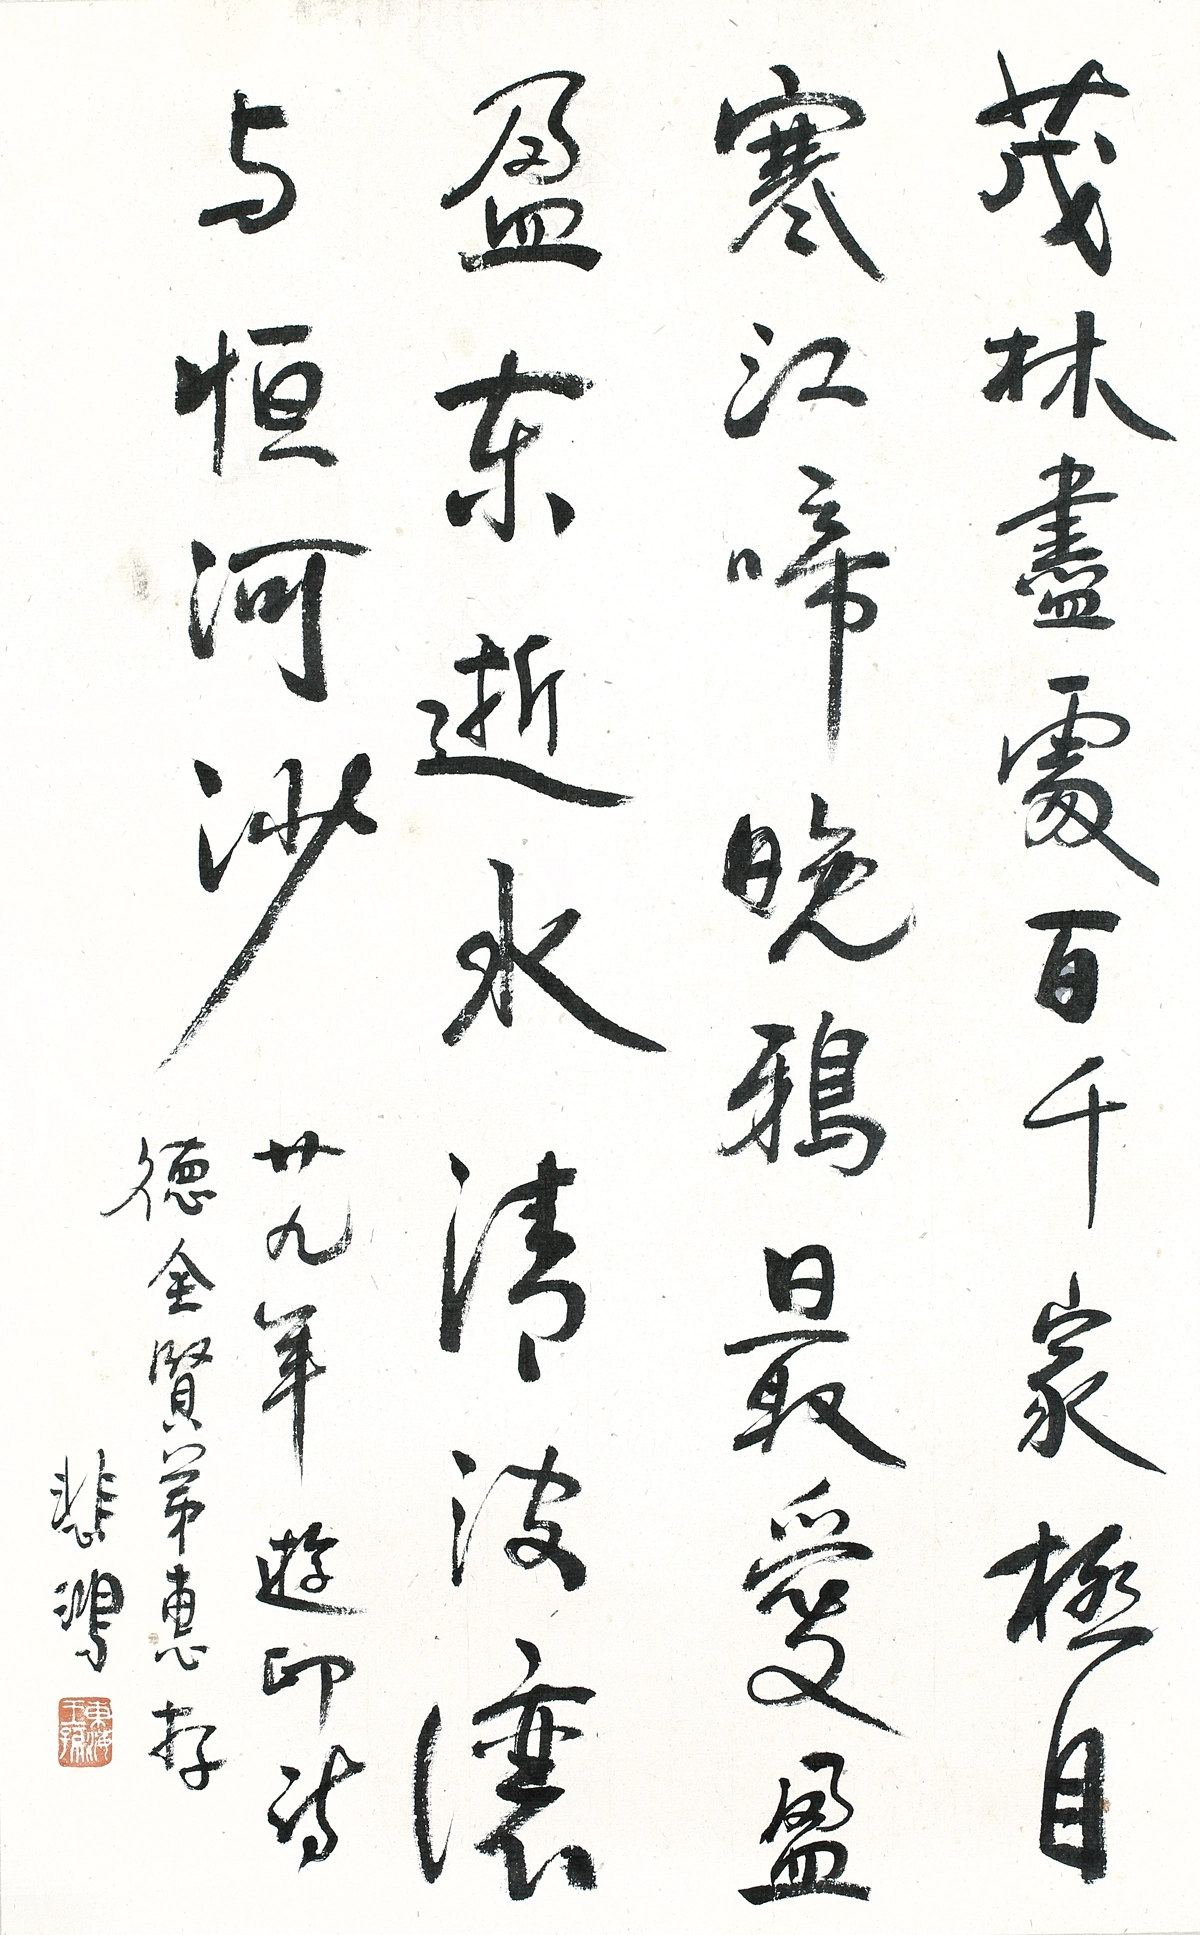 茂林盡處百千家極目
寒江啼晚鴉日最愛盈
盈東逝水清波瀼
与恒河沙
廿九年遊印詩
德全賢弟惠存
悲鴻
東海王孫